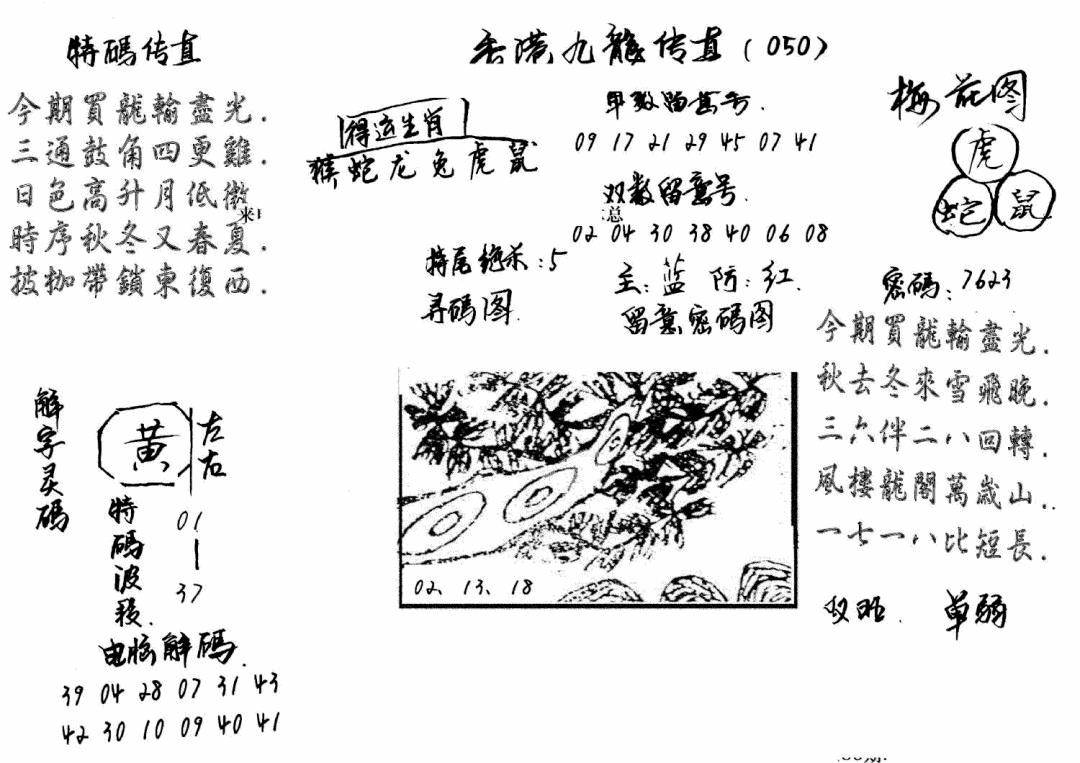 特碼传真
今期買龍輸盡光.
三通鼓角四更雞.
日色高升月低微
時序秋冬又春夏.
披枷帶鎖東復西.
香港九龍传真(050)
得运生肖
猴蛇龙兔虎鼠
单数留意号.
09 17 21 29 45 07 41
双数留意号.
02 04 30 38 40 06 08
特尾绝杀:5
寻码图
主:蓝 防:红.
留意密码图
梅花图
虎
蛇 鼠
密碼:7623
今期買龍輸盡光.
秋去冬來雪飛晚.
三六伴二八回轉.
風樓龍閣萬歲山..
一七一八比短長.
单弱
02. 13. 18
解字灵碼
黄
左右
特碼波段.
01
37
电脑解碼.
39 04 28 07 31 43
42 30 10 09 40 41